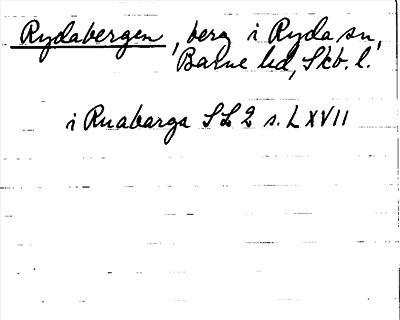 Rydabergen, berg i Ryda sn,
Barne hd, Skb. l.
i Ruabarga SL 2 s. LXVII